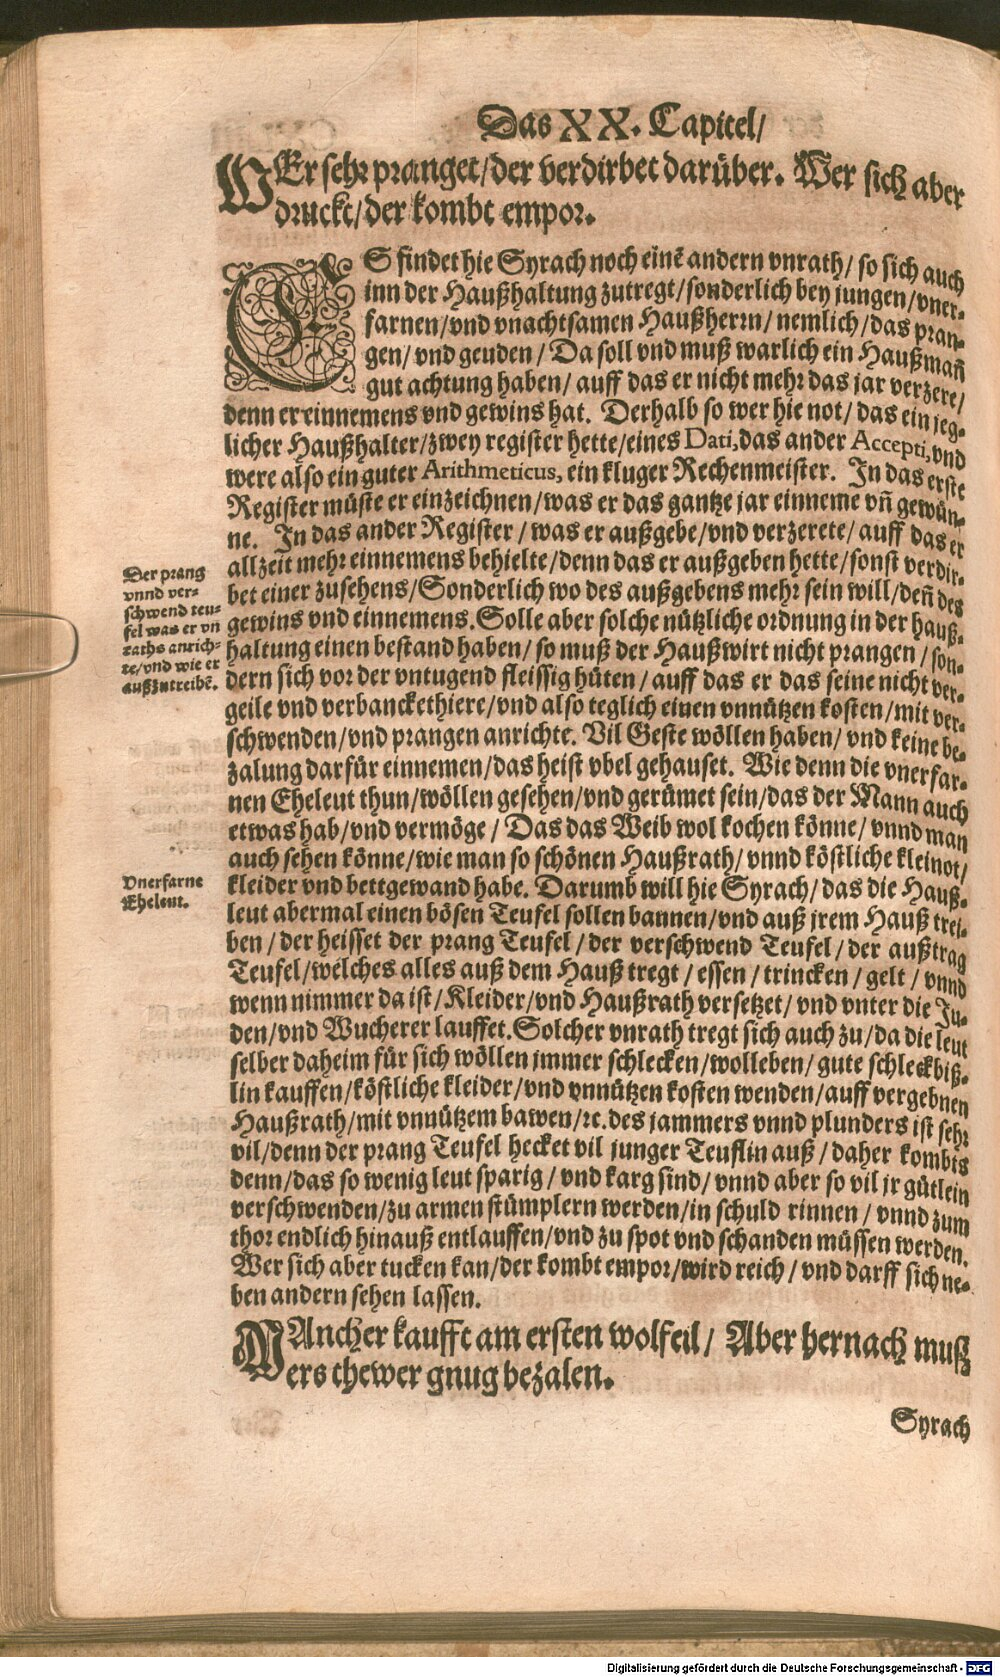 Das XX. Capitel/
WEr sehr pranget/der verdirbet darüber. Wer sich aber
druckt/der kombt empor.
ES findet hie Syrach noch einẽ andern vnrath/ so sich auch
inn der Haußhaltung zutregt/sonderlich bey jungen/vner-
farnen/vnd vnachtsamen Haußherrn/ nemlich/das pran-
gen/ vnd geuden/ Da soll vnd muß warlich ein Haußmañ
gut achtung haben/ auff das er nicht mehr das jar verzere/
denn er einnemens vnd gewins hat. Derhalb so wer hie not/ das ein jeg-
licher Haußhalter/zwey register hette/eines Dati,das ander Accepti,vnd
were also ein guter Arithmeticus, ein kluger Rechenmeister. In das erste
Register müste er einzeichnen/was er das gantze jar einneme vñ gewün-
ne. In das ander Register/ was er außgebe/vnd verzerete/ auff das er
allzeit mehr einnemens behielte/denn das er außgeben hette/sonst verdir-
bet einer zusehens/Sonderlich wo des außgebens mehr sein will/deñ des
gewins vnd einnemens. Solle aber solche nützliche ordnung in der hauß-
haltung einen bestand haben/ so muß der Haußwirt nicht prangen/ son-
dern sich vor der vntugend fleissig hüten/ auff das er das seine nicht ver-
geile vnd verbanckethiere/vnd also teglich einen vnnützen kosten/mit ver-
schwenden/vnd prangen anrichte. Vil Geste wöllen haben/ vnd keine be-
zalung darfür einnemen/das heist vbel gehauset. Wie denn die vnerfar-
nen Eheleut thun/wöllen gesehen/vnd gerümet sein/das der Mann auch
etwas hab/vnd vermöge/ Das das Weib wol kochen könne/ vnnd man
auch sehen könne/wie man so schönen Haußrath/ vnnd köstliche kleinot/
kleider vnd bettgewand habe. Darumb will hie Syrach/ das die Hauß-
leut abermal einen bösen Teufel sollen bannen/vnd auß jrem Hauß trei-
ben/ der heisset der prang Teufel/ der verschwend Teufel/ der außtrag
Teufel/welches alles auß dem Hauß tregt/ essen/ trincken/ gelt/ vnnd
wenn nimmer da ist/ Kleider/vnd Haußrath versetzet/ vnd vnter die Jü-
den/vnd Wucherer lauffet. Solcher vnrath tregt sich auch zu/da die leut
selber daheim für sich wöllen jmmer schlecken/wolleben/ gute schleckbiß-
lin kauffen/köstliche kleider/vnd vnnützen kosten wenden/auff vergebnen
Haußrath/mit vnnützem bawen/ꝛc. des jammers vnnd plunders ist sehr
vil/denn der prang Teufel hecket vil junger Teuflin auß/ daher kombts
denn/das so wenig leut sparig/ vnd karg sind/ vnnd aber so vil jr gütlein
verschwenden/zu armen stümplern werden/in schuld rinnen/ vnnd zum
thor endlich hinauß entlauffen/vnd zu spot vnd schanden müssen werden.
Wer sich aber tucken kan/der kombt empor/wird reich/ vnd darff sich ne-
ben andern sehen lassen.
MAncher kaufft am ersten wolfeil/ Aber hernach muß
ers thewer gnug bezalen.
Syrach
Der prang
vnnd ver-
schwend teu-
fel was er vn
raths anrich-
te/vnd wie er
außzutreibẽ.
Vnerfarne
Eheleut.
Digitalisierung gefördert durch die Deutsche Forschungsgemeinschaft - DFG